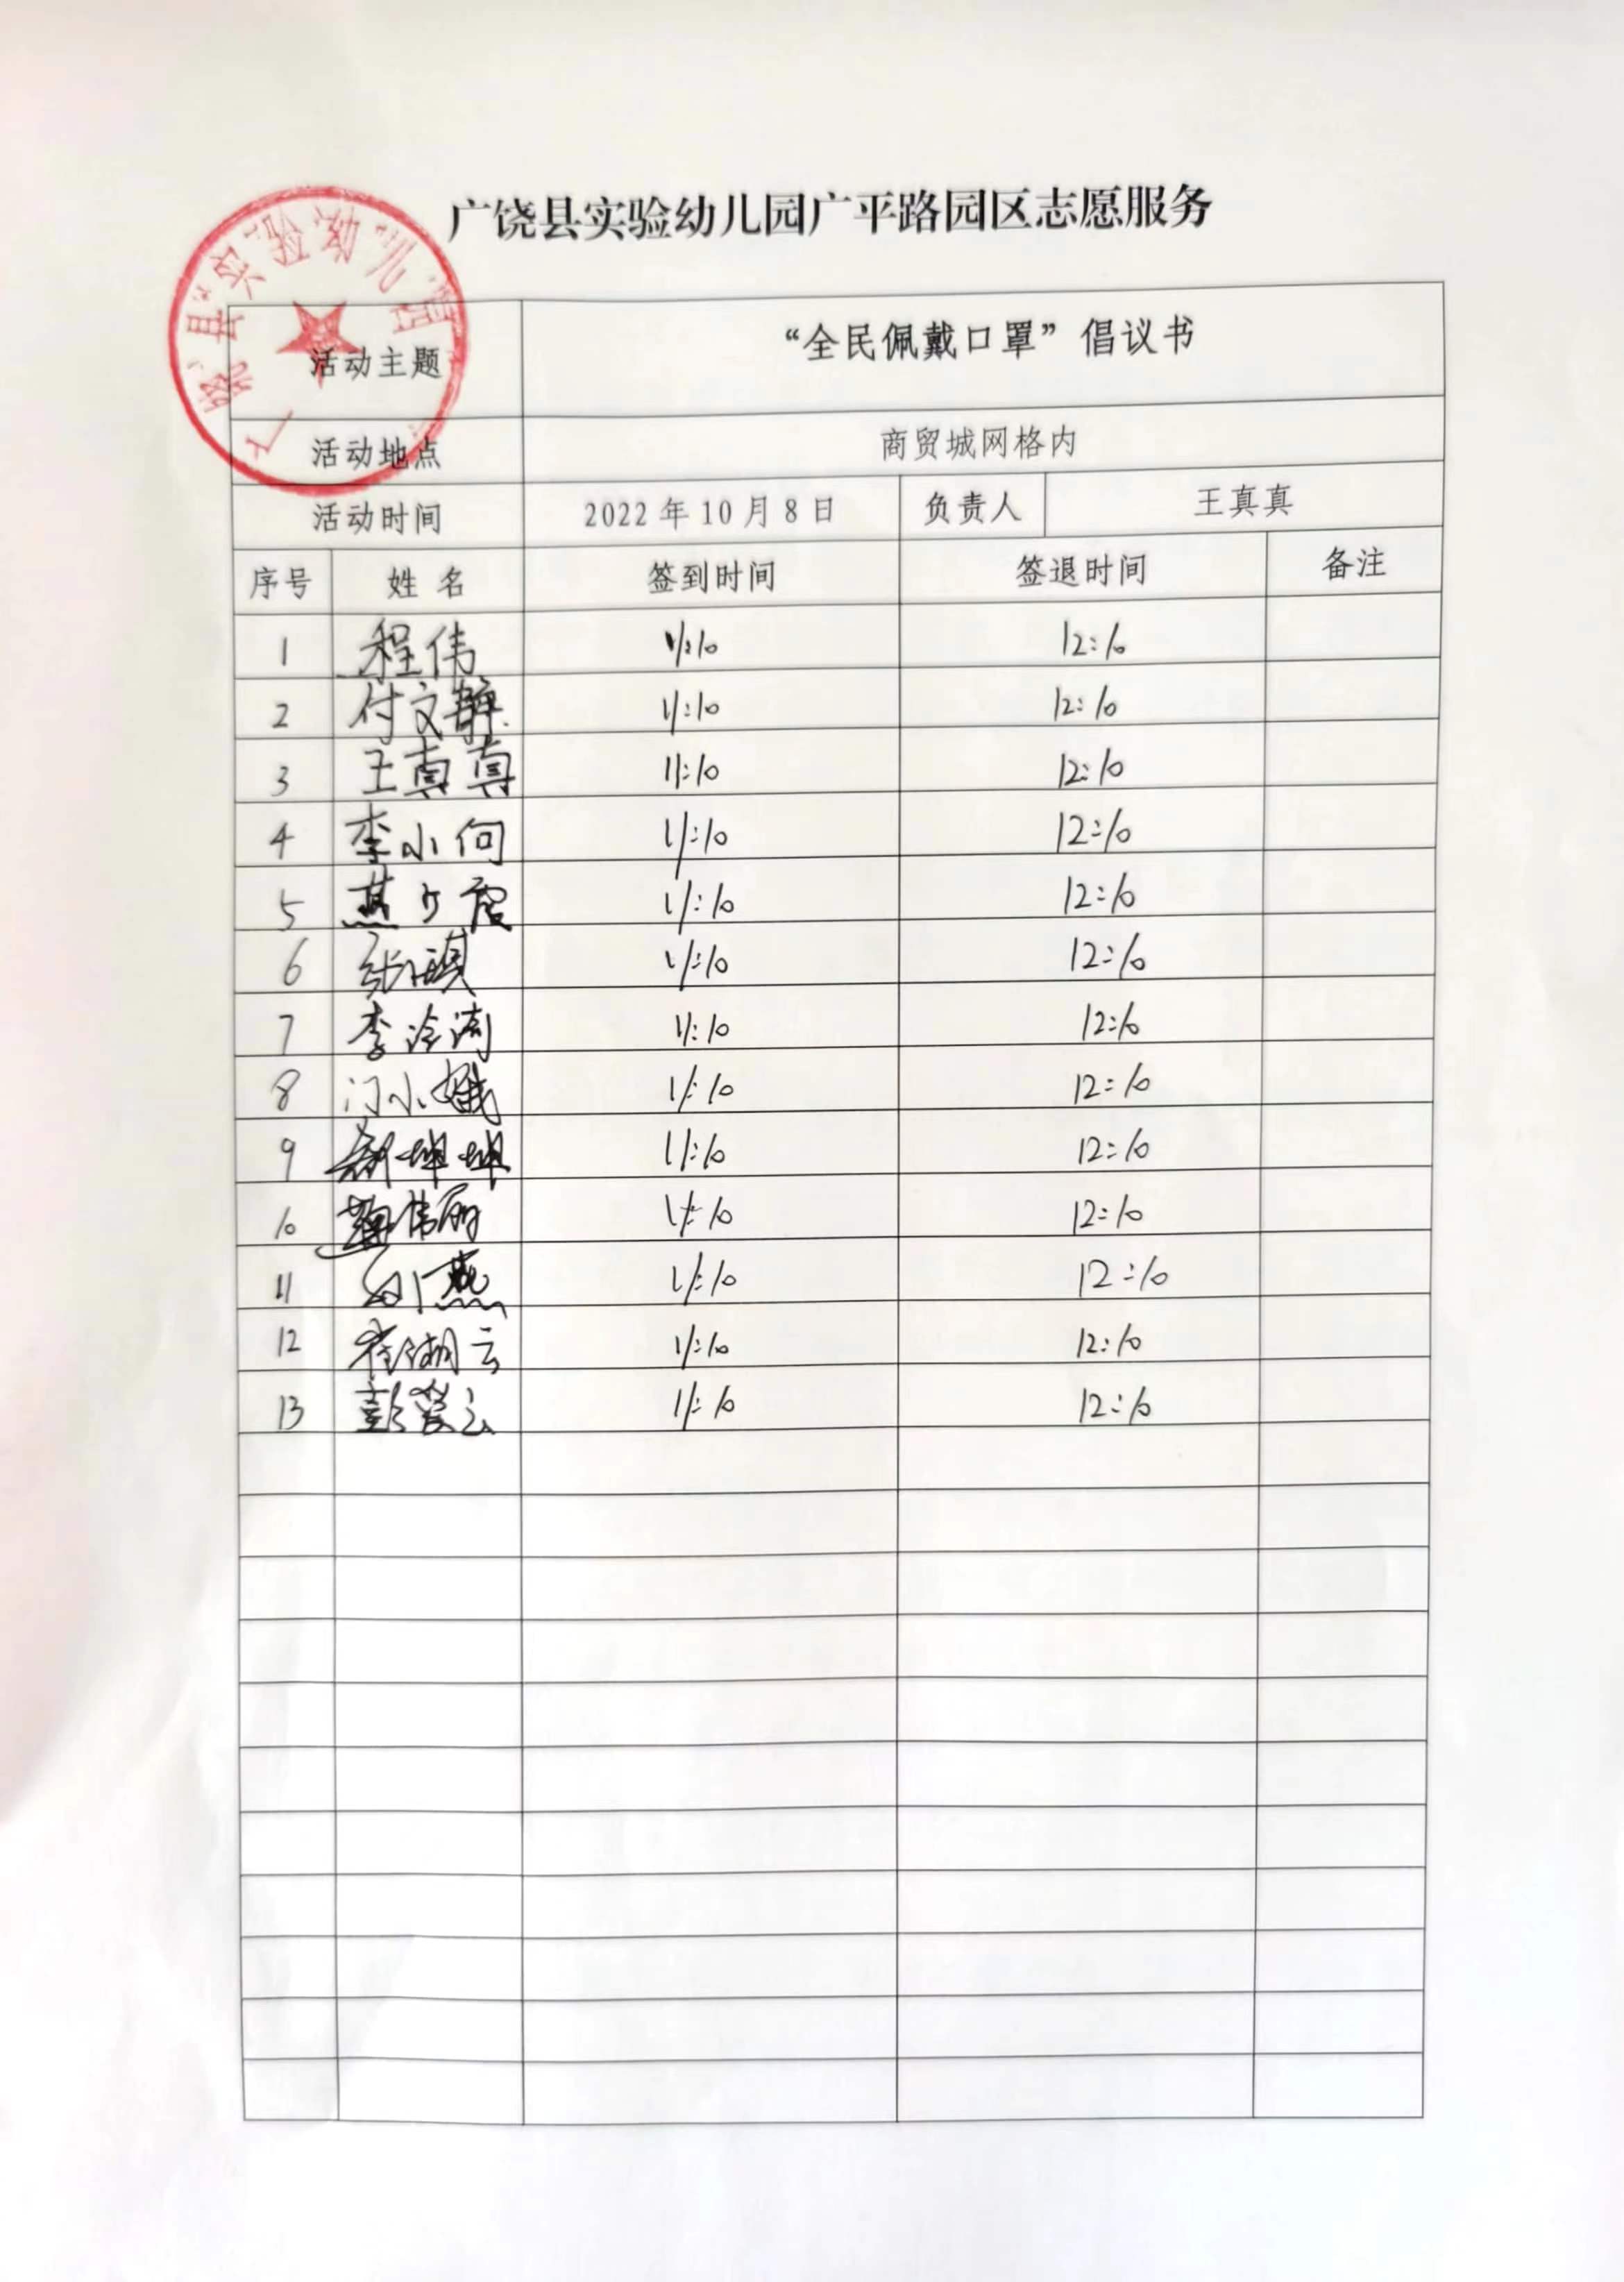 广饶县实验幼儿园广平路园区志愿服务
广饶县实验幼儿园
活动主题 “全民佩戴口罩”倡议书
活动地点 商贸城网格内
活动时间 2022年10月8日 负责人 王真真
序号 姓名 签到时间 签退时间 备注
1 程伟 11:10 12:10
2 付文静 11:10 12:10
3 王真真 11:10 12:10
4 李小何 11:10 12:10
5 燕少君 11:10 12:10
6 11:10 12:10
7 李 11:10 12:10
8 门小娥 11:10 12:10
9 坤坤 11:10 12:10
10 伟丽 11:10 12:10
11 燕 11:10 12:10
12 崔湖云 11:10 12:10
13 彭 云 11:10 12:10